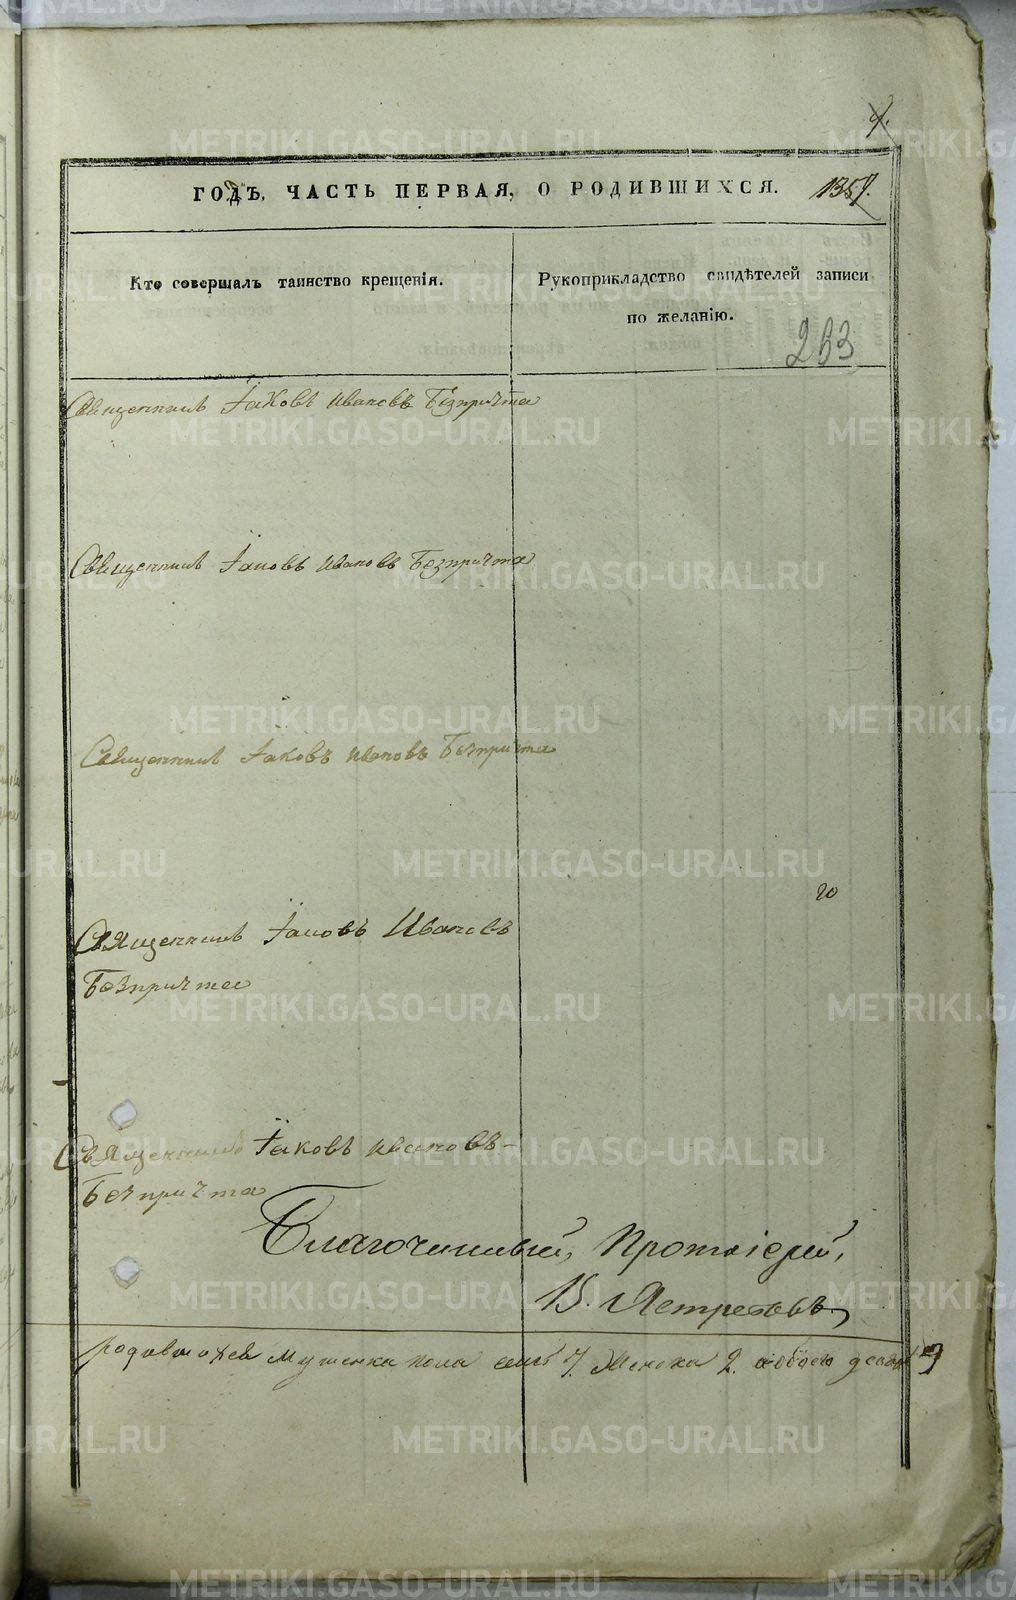 ГОДЪ, ЧАСТЬ ПЕРВАЯ, О РОДИВШИХСЯ.
Кто совершалъ таинство крещенія.
Рукоприкладство свидѣтелей записи
по желанію.
263
Священникъ Іаковъ Ивановъ Безпричта
Священникъ Іаковъ Ивановъ Безпричта
Священникъ Іаковъ Ивановъ Безпричта
Священникъ Іаковъ Ивановъ
Безпричта
Священникъ Іаковъ Ивановъ
Безпричта
Благочинный, Протоіерей,
В. Ястребовъ
родившихся мужеска пола 7. женска 2. обоего 9
METRIKI.GASO-URAL.RU